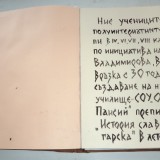 Ние учениците
полуинтернатните
ни в IV, VI, VII, VIII к
по инициатива на
Владимирова, В
връзка с 30 годи
създаване на на
училище: СОУ„О
Паисий" препи
„История слав
гарска" в ист